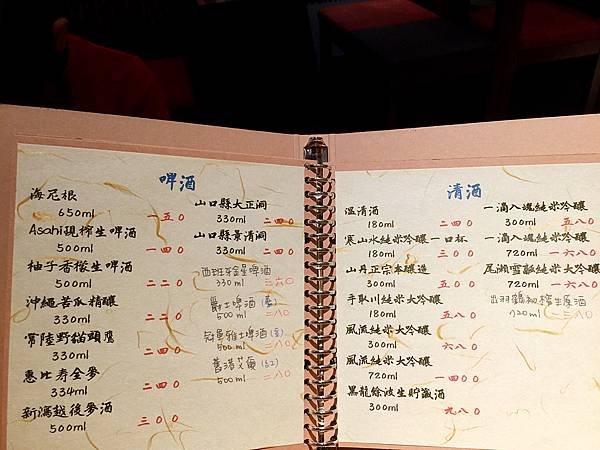 啤酒
海尼根
650ml 一五0
Asahi現榨生啤酒
500ml 一四0
柚子香檬生啤酒
500ml 二二0
沖繩苦瓜精釀
330ml 二二0
常陸野貓頭鷹
330ml 二四0
惠比寿全麥
334ml 二四0
新瀉越後麥酒
500ml 三00
山口縣大正洞
330ml 二四0
山口縣景清洞
330ml 二四0
西班牙金星啤酒
330ml 二六0
爵士啤酒
500ml 二八0
冠軍雅士啤酒
500ml 二八0
舊港艾爾(紅)
500ml 二八0
清酒
溫清酒
180ml 二四0
寒山水純米吟釀一口杯
180ml 三00
山丹正宗本釀造
300ml 五八0
手取川純米大吟釀
180ml 五八0
風流純米大吟釀
300ml 六八0
風流純米大吟釀
720ml 一四00
黑龍餘波生貯藏酒
300ml 九八0
一滴入魂純米吟釀
300ml 五八0
一滴入魂純米吟釀
720ml 一六八0
尾瀨雪融純米大吟釀
720ml 一六八0
出羽鶴初榨生原酒
720ml 一三八0